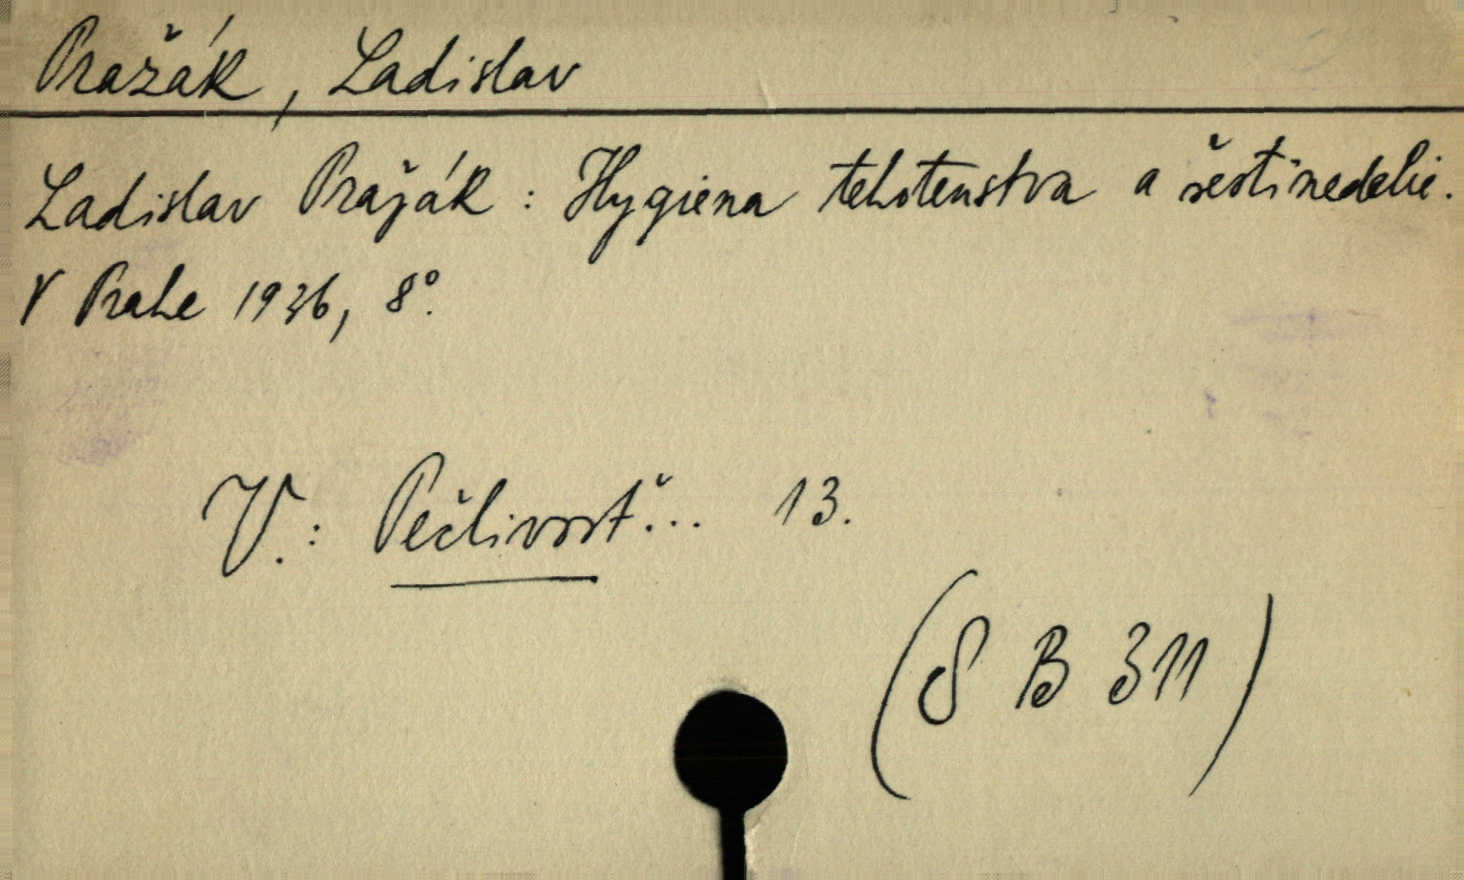 Pražák, Ladislav
Ladislav Pražák: Hygiena tehotenstva a šestinedelie.
V Prahe 1936, 8°.
V.: Pečlivosť... 13.
(S B 311)